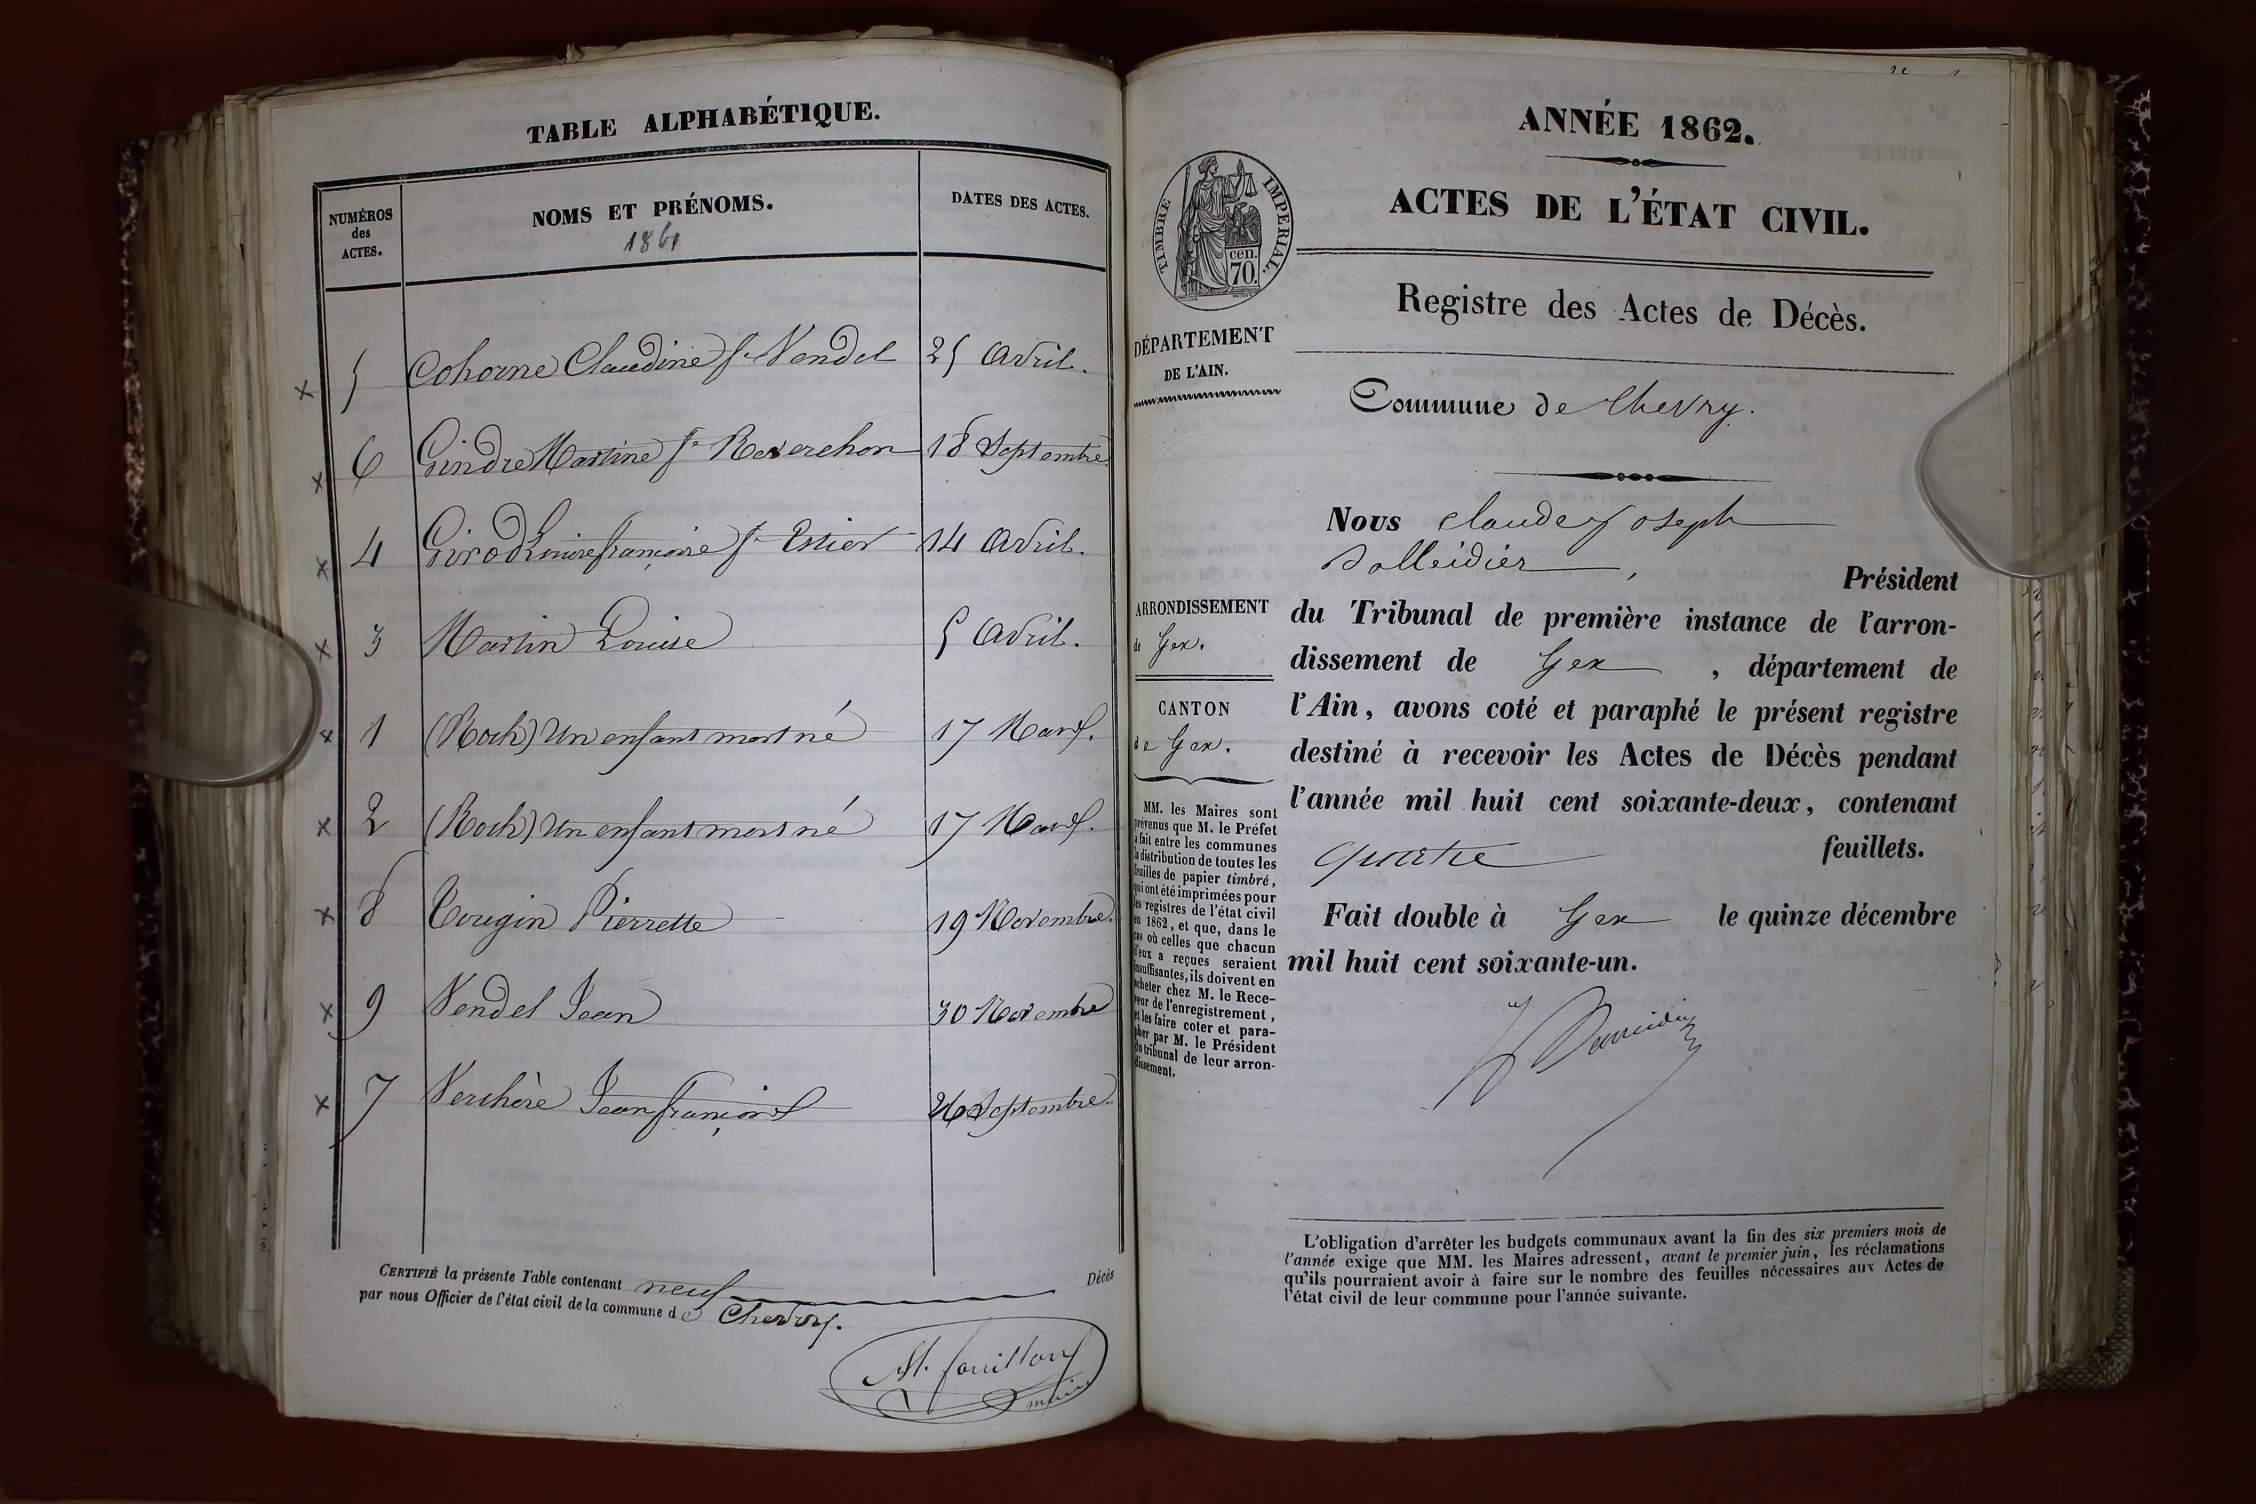 TABLE ALPHABÉTIQUE.
NUMÉROS
des
ACTES.
NOMS ET PRÉNOMS.
1861
DATES DES ACTES.
x 5 Cohorne Claudine fe Vendel 25 Avril.
x 6 Gindre Martine fe Reverchon 18 Septembre
x 4 Girod Louise françoise fe Estier 14 Avril.
x 3 Martin Louise 5 Avril.
x 1 (Roch) Un enfant mort né 17 Mars.
x 2 (Roch) Un enfant mort né 17 Mars.
x 8 Tougin Pierrette 19 Novembre.
x 9 Vendel Jean 30 Novembre
x 7 Verchère Jean françois 26 Septembre.
CERTIFIÉ la présente Table contenant neuf Décès
par nous Officier de l'état civil de la commune de Chevry.
M. fouilloux
maire
ANNÉE 1862.
ACTES DE L'ÉTAT CIVIL.
TIMBRE IMPERIAL.
cen.
70.
Registre des Actes de Décès.
DÉPARTEMENT
DE L'AIN.
Commune de Chevry.
Nous Claude Joseph
Président
ARRONDISSEMENT
de Gex.
CANTON
de Gex.
MM. les Maires sont
prévenus que M. le Préfet
a fait entre les communes
la distribution de toutes les
feuilles de papier timbré,
qui ont été imprimées pour
les registres de l'état civil
en 1862, et que, dans le
cas où celles que chacun
d'eux a reçues seraient
insuffisantes, ils doivent en
acheter chez M. le Rece-
veur de l'enregistrement,
et les faire coter et para-
pher par M. le Président
du tribunal de leur arron-
dissement.
du Tribunal de première instance de l'arron-
dissement de Gex, département de
l'Ain, avons coté et paraphé le présent registre
destiné à recevoir les Actes de Décès pendant
l'année mil huit cent soixante-deux, contenant
quatre feuillets.
Fait double à Gex le quinze décembre
mil huit cent soixante-un.
L'obligation d'arrêter les budgets communaux avant la fin des six premiers mois de
l'année exige que MM. les Maires adressent, avant le premier juin, les réclamations
qu'ils pourraient avoir à faire sur le nombre des feuilles nécessaires aux Actes de
l'état civil de leur commune pour l'année suivante.